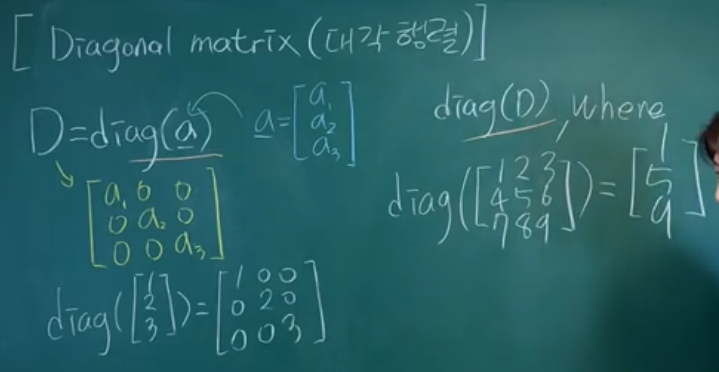 [ Diagonal matrix (대각행렬)]
D=diag(a) a=[a₁ a₂ a₃]
[a₁ 0 0
0 a₂ 0
0 0 a₃]
diag([1 2 3])=[1 0 0
0 2 0
0 0 3]
diag(D), where
diag([1 2 3
4 5 6
7 8 9])=[1 5 9]